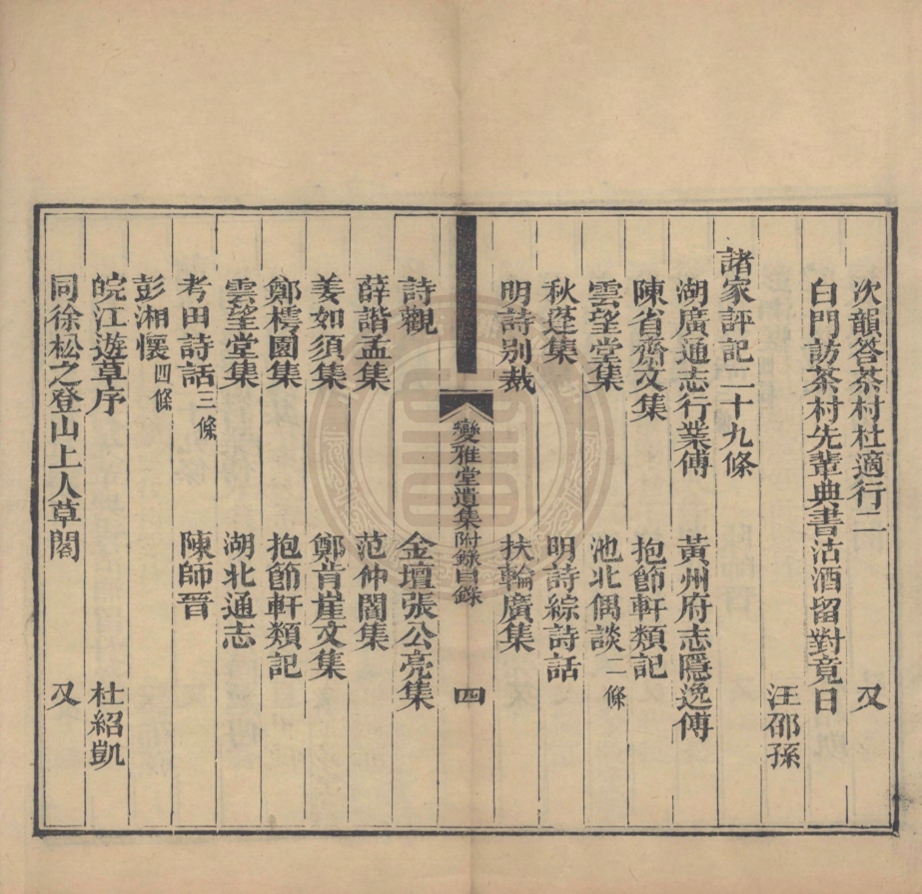 次韻答茶村杜適行二　又
白門訪茶村先輩典書沽酒留對竟日
汪邵孫
諸家評記二十九條
湖廣通志行業傳　黃州府志隱逸傳
陳省齋文集　抱節軒類記
雲望堂集　池北偶談二條
秋蓬集　明詩綜詩話
明詩別裁　扶輪廣集
變雅堂遺集附錄目錄　四
詩觀　金壇張公亮集
薛諧孟集　范仲闇集
姜如須集　鄭肯崖文集
鄭樗園集　抱節軒類記
雲望堂集　湖北通志
考田詩話三條　陳師晉
彭湘懷四條
皖江遊草序　杜紹凱
同徐松之登山上人草閣　又